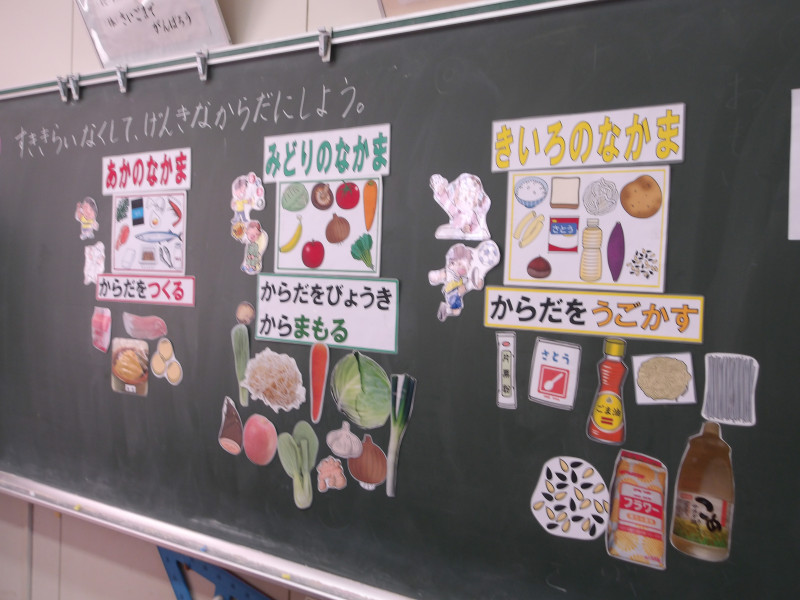 はさいごまで
がんばろう
すききらいなくして、げんきなからだにしよう。
あかのなかま
からだをつくる
みどりのなかま
からだをびょうき
からまもる
きいろのなかま
さとう
からだをうごかす
片栗粉
さとう
ごま油
フラワー